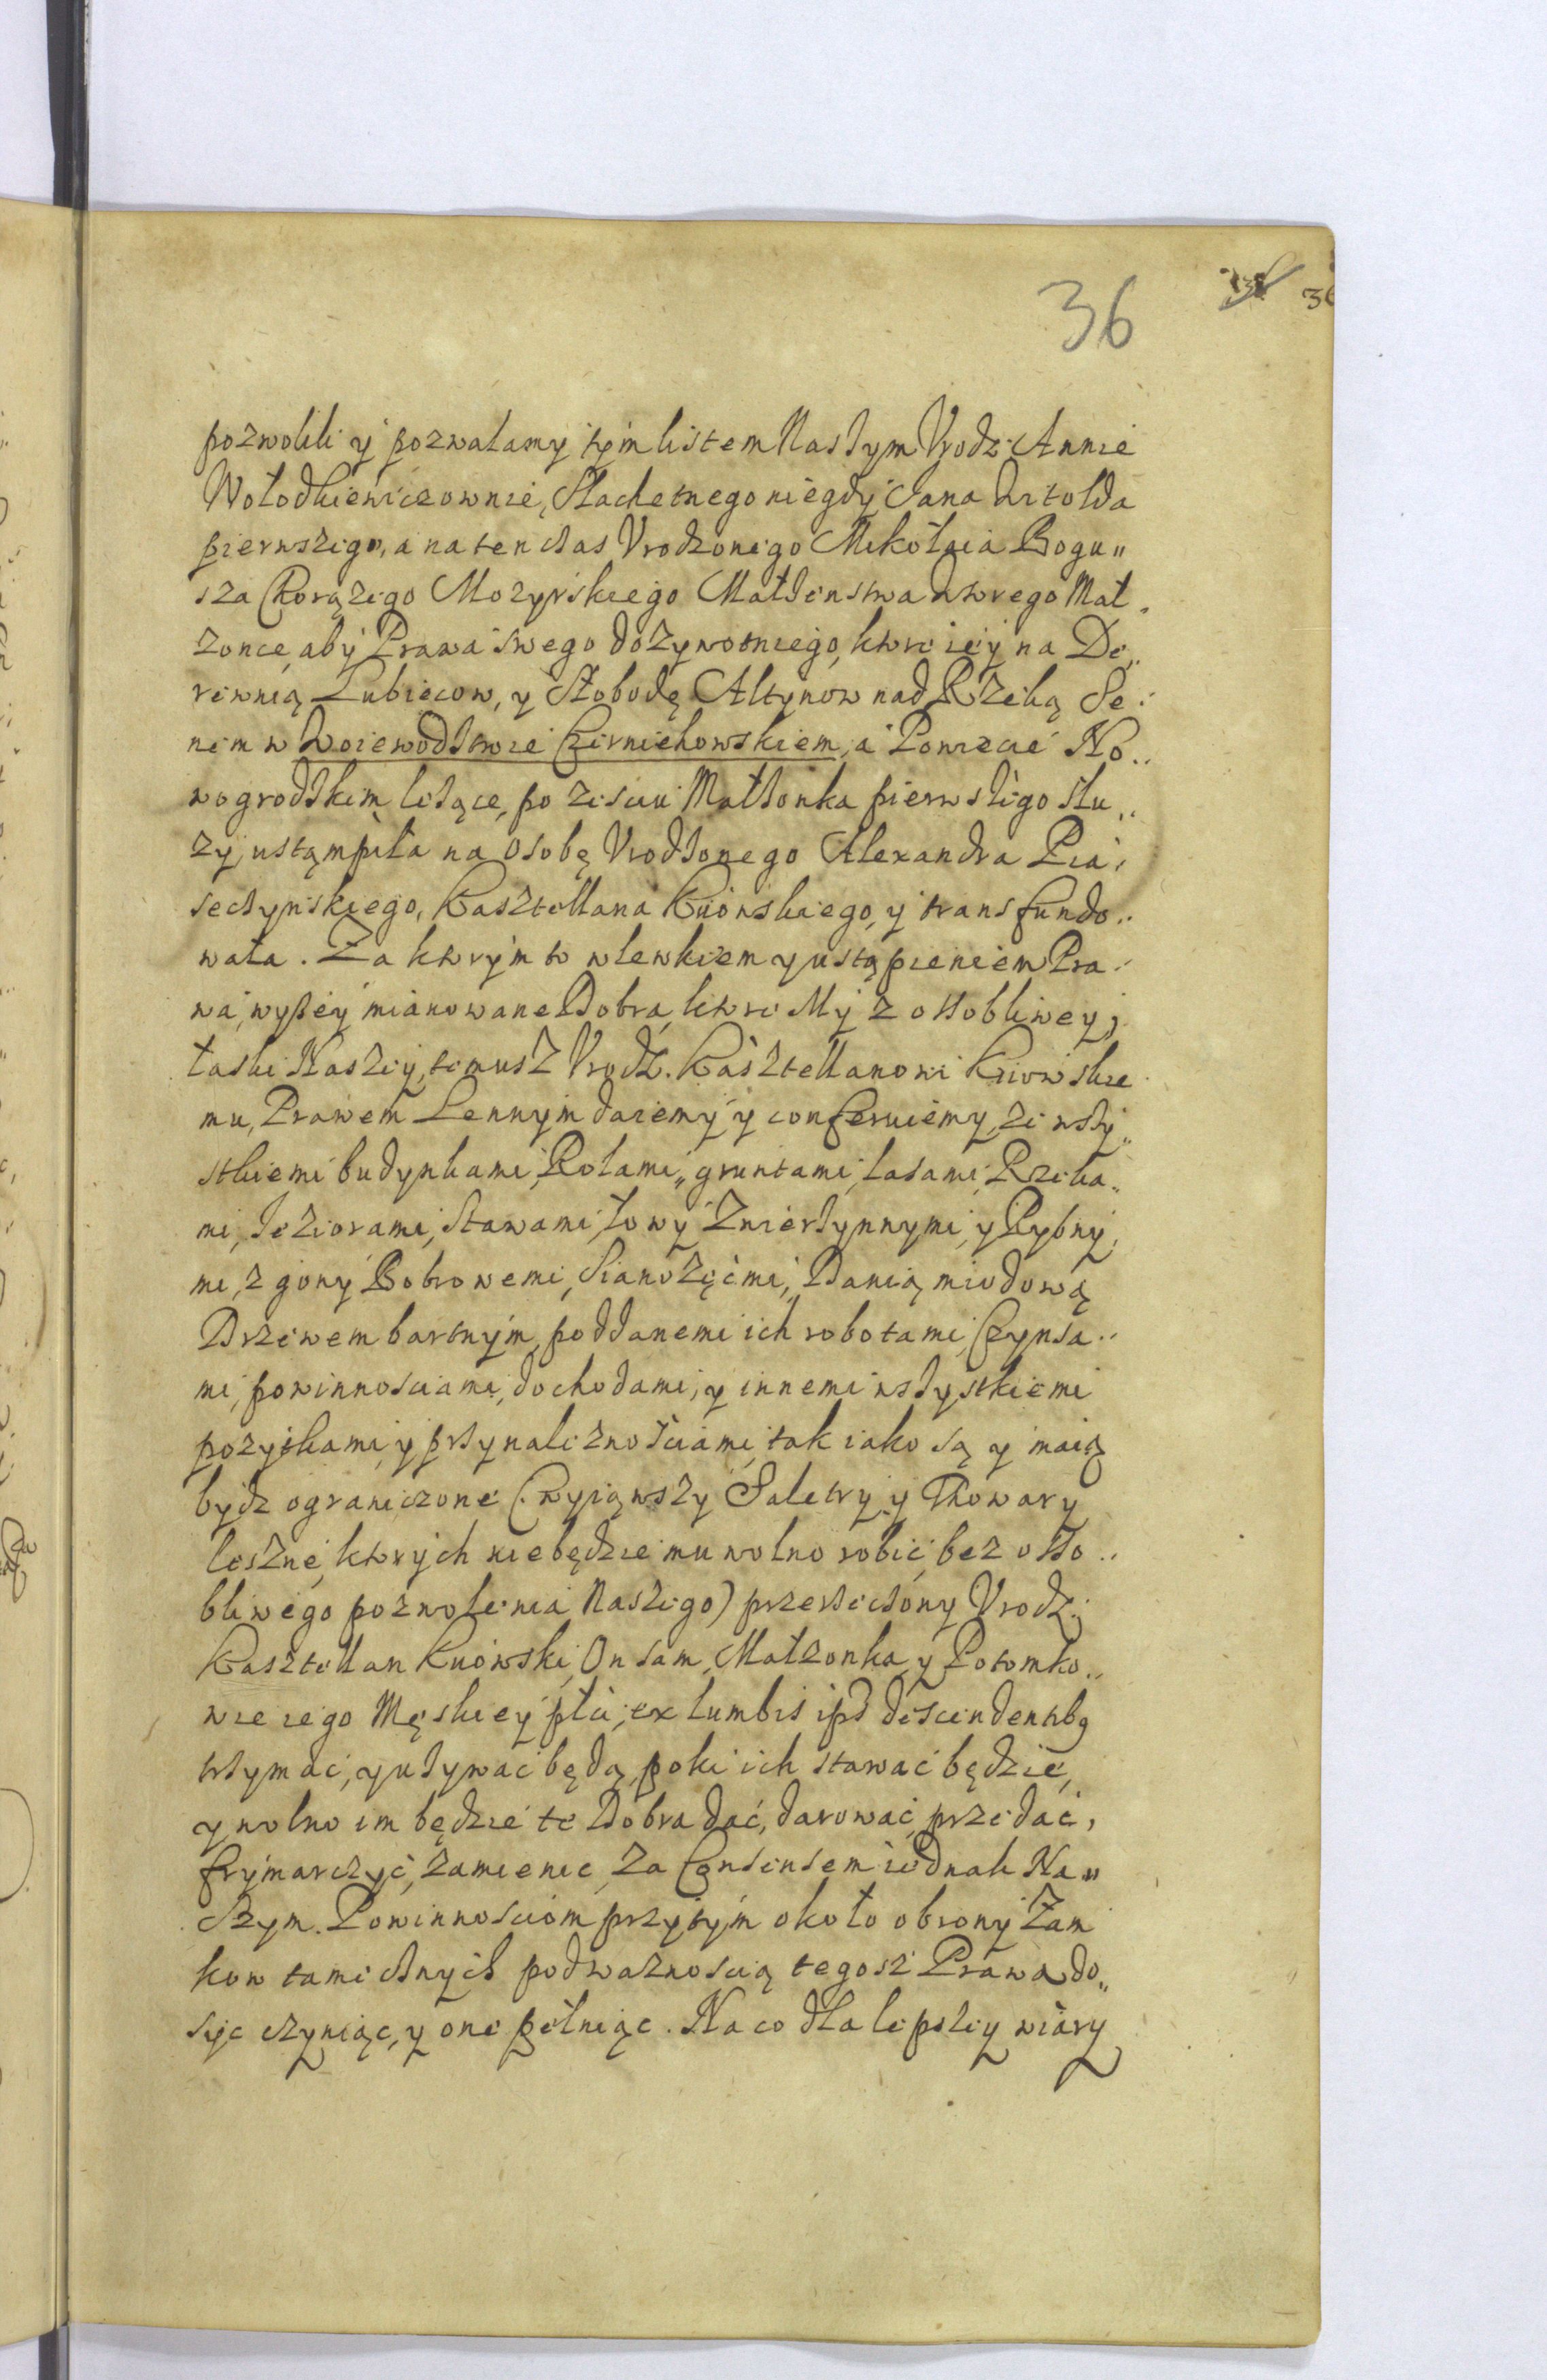 36
36
pozwolili y pozwalamy tym listem Naszym Vrodz: Annie
Wołodkiewiczownie, Slachetnego niegdy Jana Witolda
pierwszego, a na ten czas Vrodzonego Mikołaia Bogu"
sza Chorązego Mozyrskiego Małzenstwa wtorego Mał„
zonce, aby Prawa swego dozywotniego, ktore iey na De„
rewnią Lubiecow, y Słobodę Altynow nad Rzeką Se:
nem w Woiewodztwie Czerniehowskiem, a Powiecie No„
wogrodzkim lezące, po zesciu Małzonka pierwszego słu„
zy, ustąmpiła na osobę Vrodzonego Alexandra Pia:
seczynskiego, Kasztellana Kiiowskiego, y transfundo„
wała. Za ktorym to wlewkiem y ustąpieniem Pra:
wa, wyszey mianowane Dobra, ktore My z ossobliwey
łaski Naszey, temusz Vrodz. Kasztellanowi Kiiowskie
mu, Prawem Lennym daiemy y conferuiemy, ze wszy„
stkiemi budynkami, Rolami, gruntami, Lasami, Rzeka„
mi, Jeziorami, Stawami, Łowy Zwierzynnymi, y Rybny,
mi, z gony Bobrowemi, Sianozęćmi, Danią miodową
Drzewem bartnym, poddanemi ich robotami, Czynsza„
mi, powinnosciami, dochodami, y innemi wszystkiemi
pozytkami, y przynaleznosciami, tak iako są y maią
bydz ograniczone (wyiąwszy Saletry, y Thowary
leszne, ktorych nie będzie mu wolno robić, bez osso„
bliwego pozwolenia Naszego) przerzeczony Vrodz:
Kasztellan Kiiowski, On sam, Małzonka, y Potomko„
wie iego Męskiey płci, ex lumbis ips descendentbq
trzymać, y uzywać będą, poki ich stawać będzie,
y wolno im będzie te Dobra dać, darować, przedać,
frymarczyć, zamienić, za Consensem iednak Na"
szym. Powinnosciom przytym około obrony Zam
kow tamecznych pod waznoscią tegosz Prawa do„
syc czyniąc, y one pełniąc. Na co dla lepszey wiary